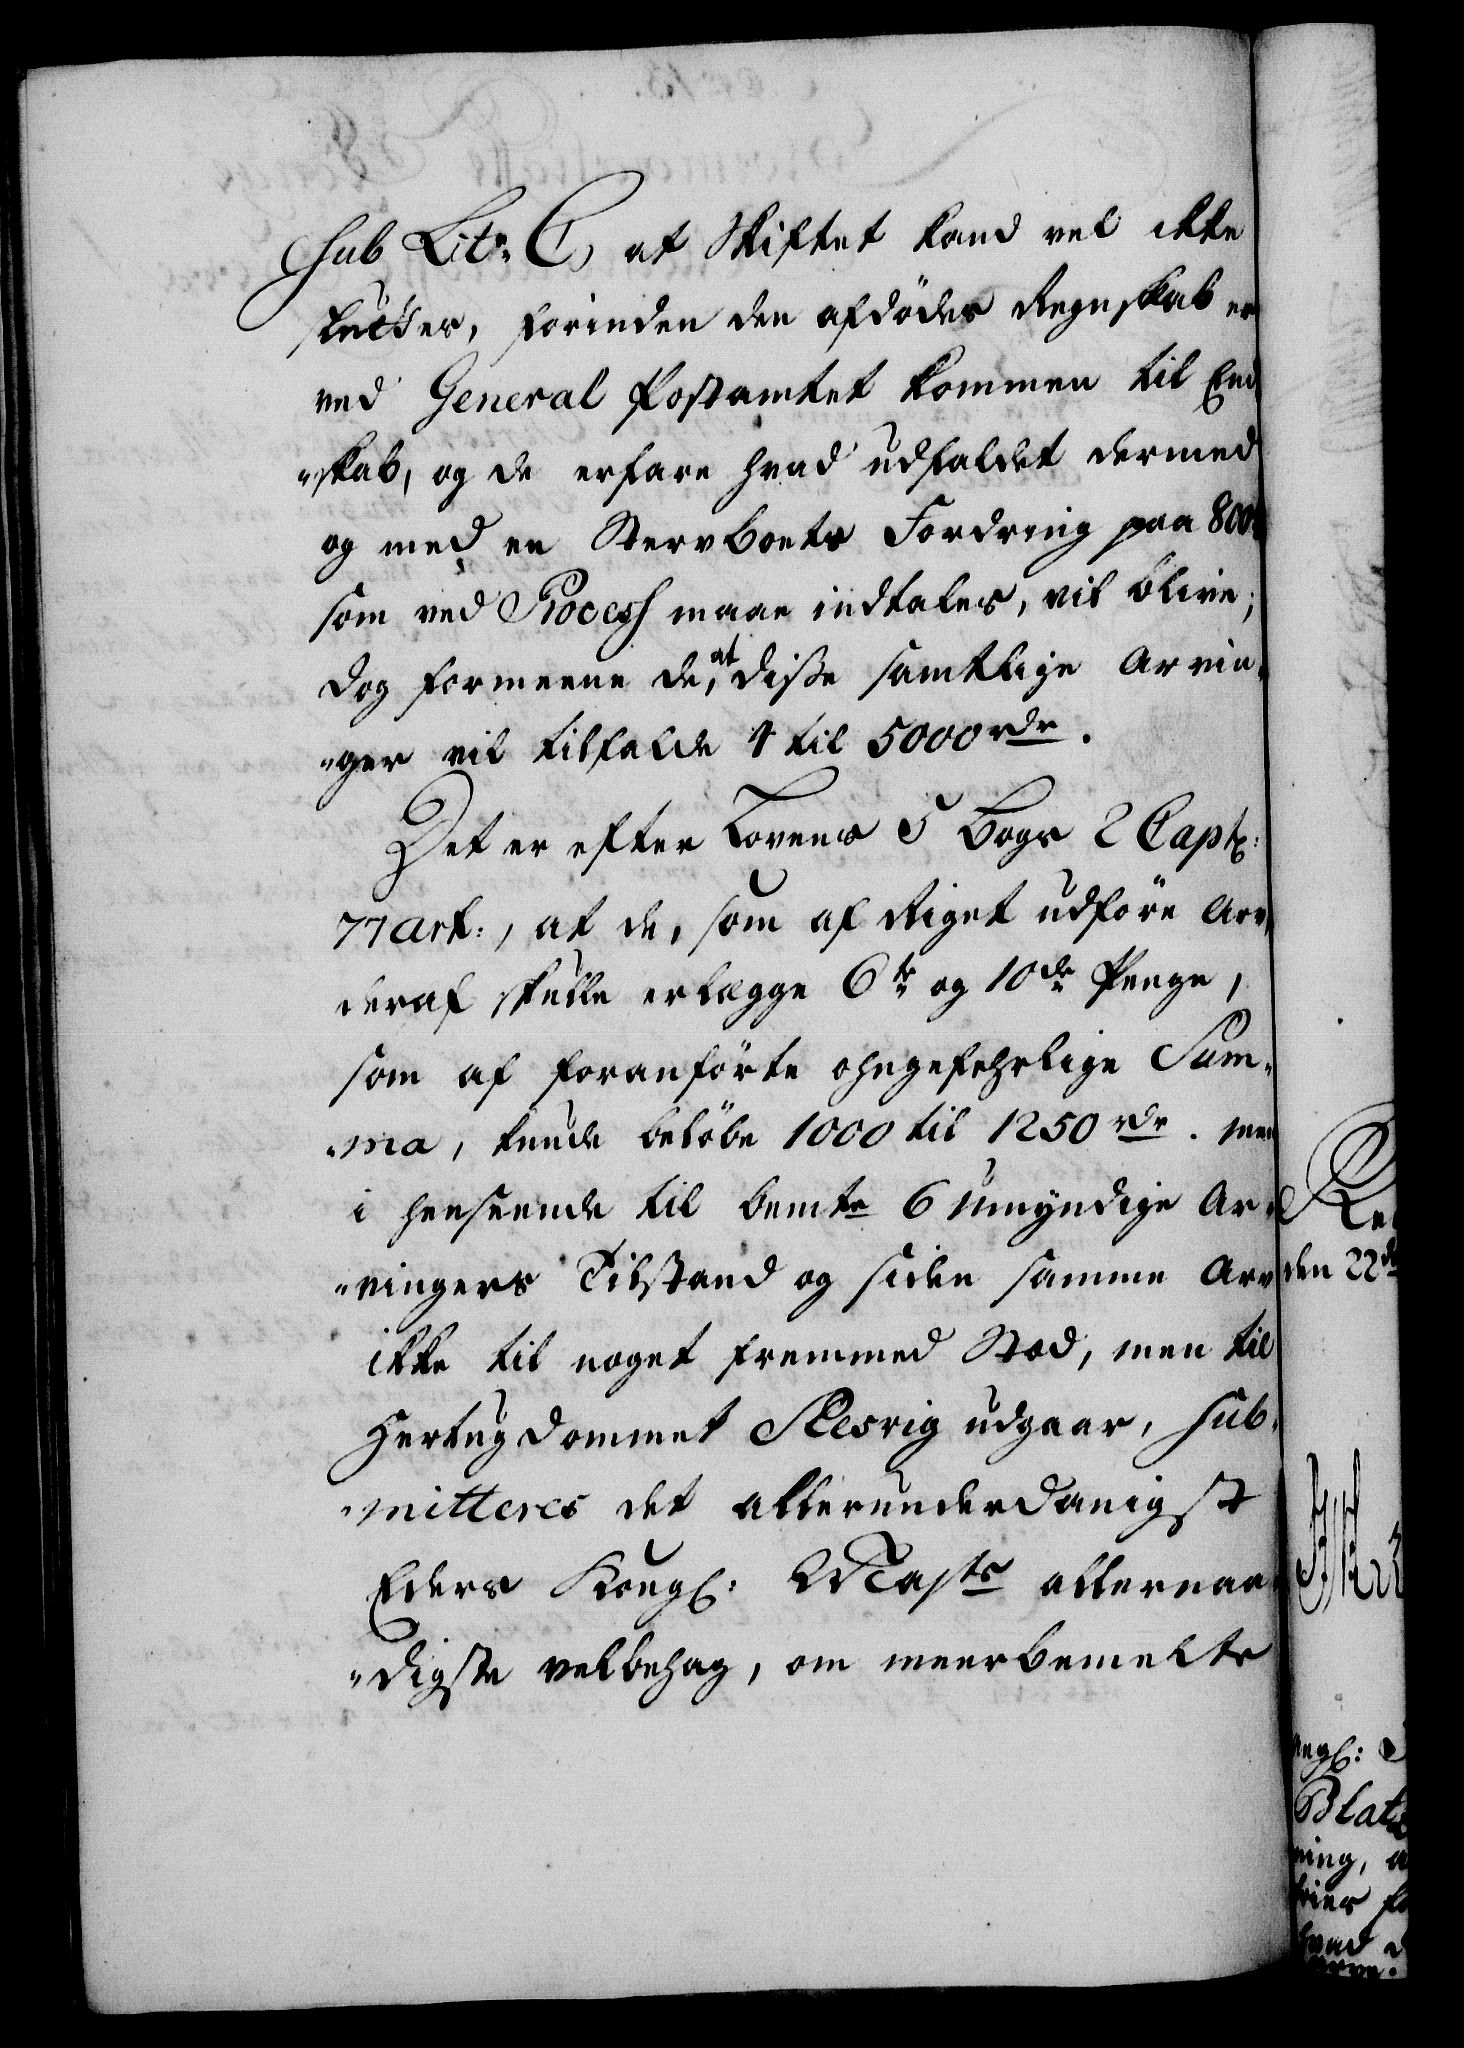 sub Litr: C, at Skiftet kand vel ikke
sluttes, forinden den afdødes Regnskab er
ved General Postamtet kommen til End
"skab, og de erfare hvad udfaldet dermed
og med en Stervboets Fordring paa 800
som ved Process maae indtales, vil blive;
dog formeene de, at disse samtlige Arvin-
"ger vil tilfalde 4 til 5000 rdr.
Det er efter Lovens 5 Bogs 2 Capt:
77 Art:, at de, som af Riget udføre Arv,
deraf skulle erlægge 6te og 10de Penge,
som af foranførte ohngefehrlige Sum-
"ma, kunde beløbe 1000 til 1250 rdr. men
i henseende til bemte 6 umyndige Ar-
"vingers Tilstand og siden samme Arv
ikke til noget fremmed Stæd, men til
Hertugdommet Slesvig udgaar, sub-
"mitteres det allerunderdanigst
Eders Kongl: Mayts allernaa-
"digste velbehag, om meerbemelte
den 22de